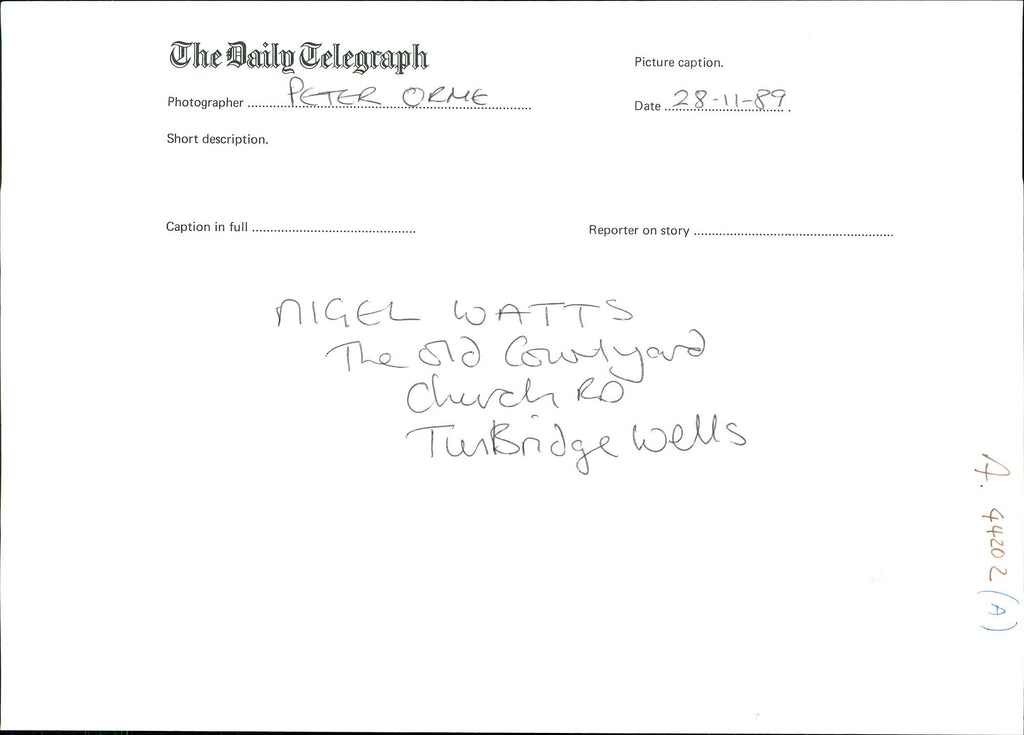 The Daily Telegraph
Picture caption.
Photographer PETER ORME
Date 28-11-89.
Short description.
Caption in full
Reporter on story
NIGEL WATTS
The Old Courtyard
Church RD
TunBridge Wells
A. 44202 (A)